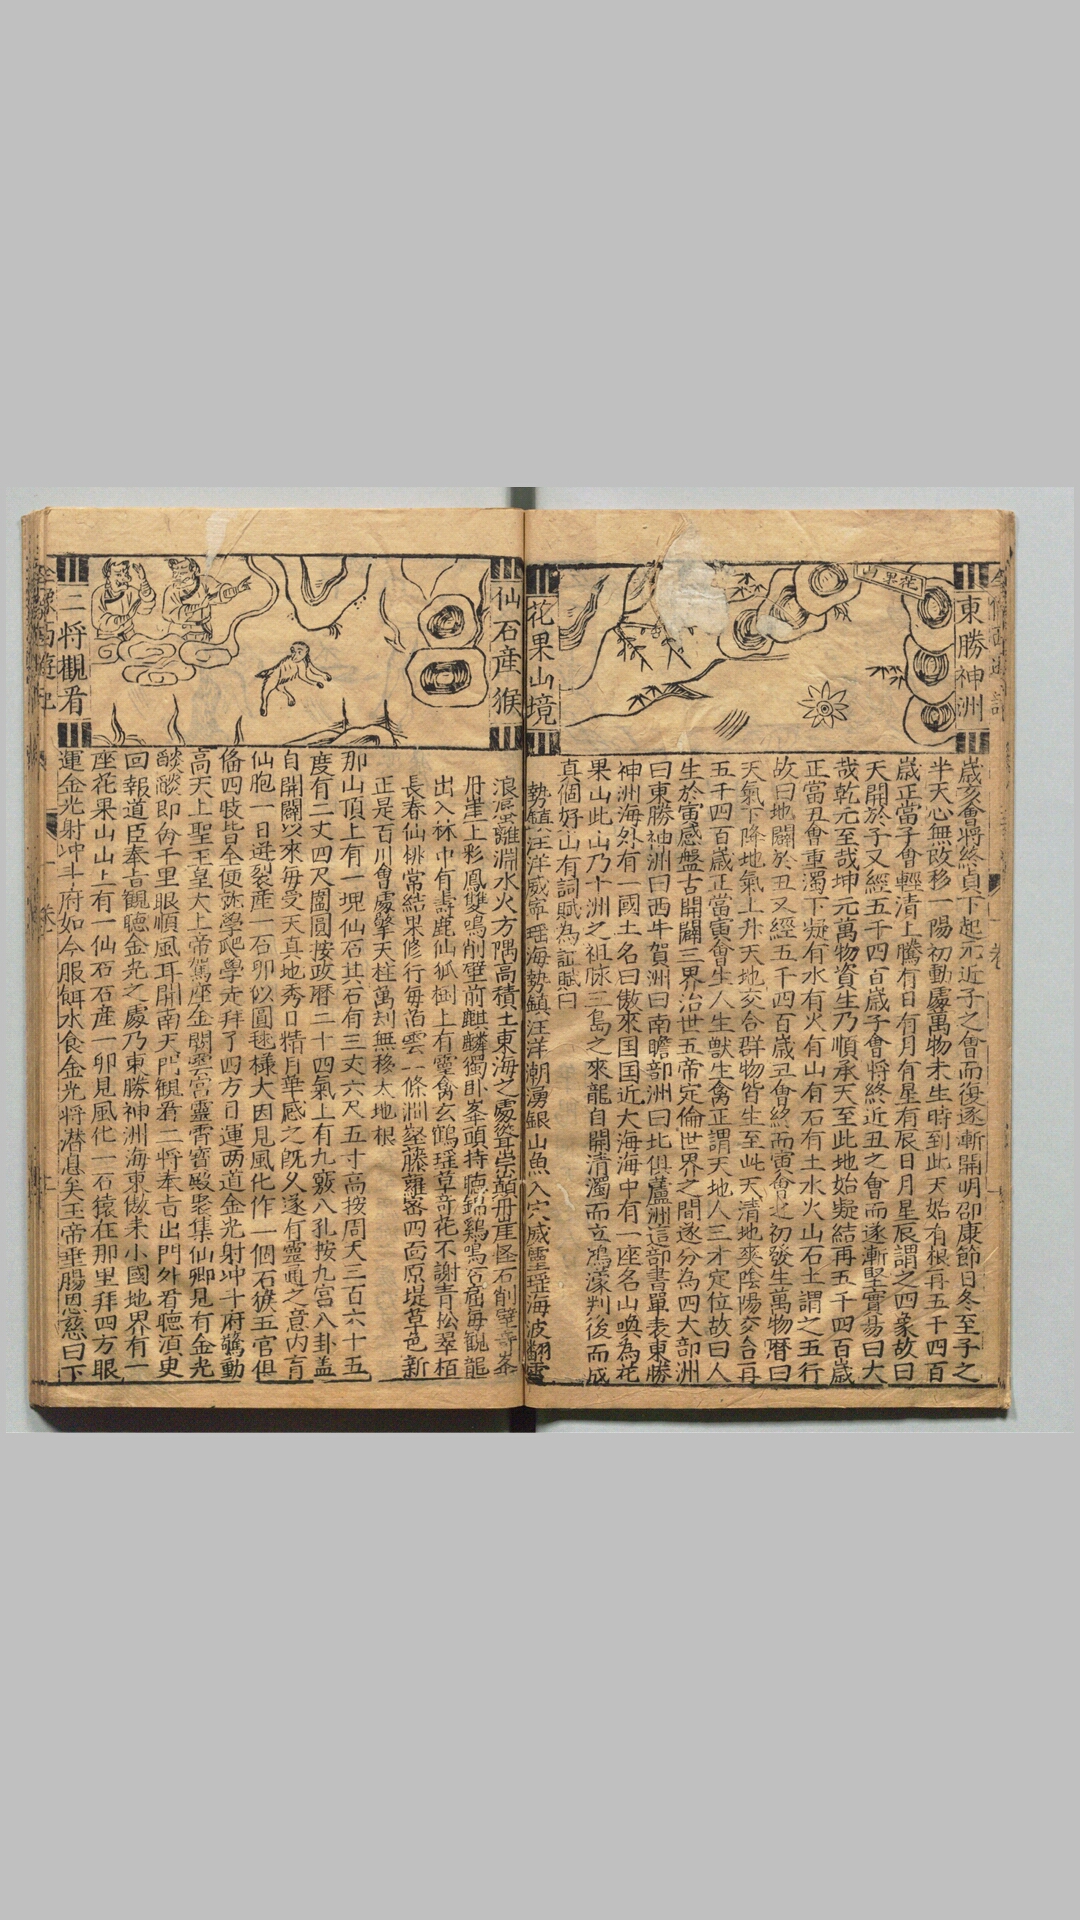 東勝神洲
花果山
花果山境
歲亥會將終貞下起元近子之會而復逐漸開明邵康節曰冬至子之
半天心無改移一陽初動處萬物未生時到此天始有根再五千四百
歲正當子會輕清上騰有日有月有星有辰日月星辰謂之四象故曰
天開於子又經五千四百歲子會將終近丑之會而遂漸堅實昜曰大
哉乾元至哉坤元萬物資生乃順承天至此地始凝結再五千四百歲
正當丑會重濁下凝有水有火有山有石有土水火山石土謂之五行
故曰地闢於丑又經五千四百歲丑會終而寅會之初發生萬物曆曰
天氣下降地氣上升天地交合群物皆生至此天清地爽陰陽交合再
五千四百歲正當寅會生人生獸生禽正謂天地人三才定位故曰人
生於寅感盤古開闢三界治世五帝定倫世界之間遂分為四大部洲
曰東勝神洲曰西牛賀洲曰南贍部洲曰北俱蘆洲這部書單表東勝
神洲海外有一國土名曰傲來国国近大海海中有一座名山喚為花
果山此山乃十洲之祖脉三島之來龍自開清濁而立鴻濛判後而成
真個好山有詞賦為証賦曰
勢鎮汪洋威寧瑶海勢鎮汪洋潮湧銀山魚入穴威靈瑶海波翻雪
仙石産猴
二將觀看
浪蜃離淵水火方隅高積土東海之處聳崇顛丹崖怪石削壁奇峯
丹崖上彩鳳雙鳴削壁前麒麟獨卧峯頭持聴錦鷄鳴石窟每観龍
出入林中有壽鹿仙狐樹上有靈禽玄鶴瑶草奇花不謝青松翠栢
長春仙桃常結果修行每泊雲一條澗壑藤蘿密四面原堤草色新
正是百川會處擎天柱萬刼無移太地根
那山頂上有一塊仙石其石有三丈六尺五寸高按周天三百六十五
度有二丈四尺圍圓按政曆二十四氣上有九竅八孔按九宮八卦盖
自開闢以來每受天真地秀日精月華感之既久遂有靈通之意内育
仙胞一日迸裂産一石卵似圓毬樣大因見風化作一個石猴五官俱
俻四肢皆全便就學爬學走拜了四方目運两道金光射冲斗府驚動
高天上聖王皇大上帝駕座金闕雲宮靈霄寳殿聚集仙卿見有金光
燄燄即命千里眼順風耳開南天門観看二將奉旨出門外看聴須臾
回報道臣奉旨観聴金光之處乃東勝神洲海東傲來小國地界有一
座花果山山上有一仙石石産一卵見風化一石猿在那里拜四方眼
運金光射冲斗府如今服餌水食金光將潜息矣王帝垂賜恩慈曰下